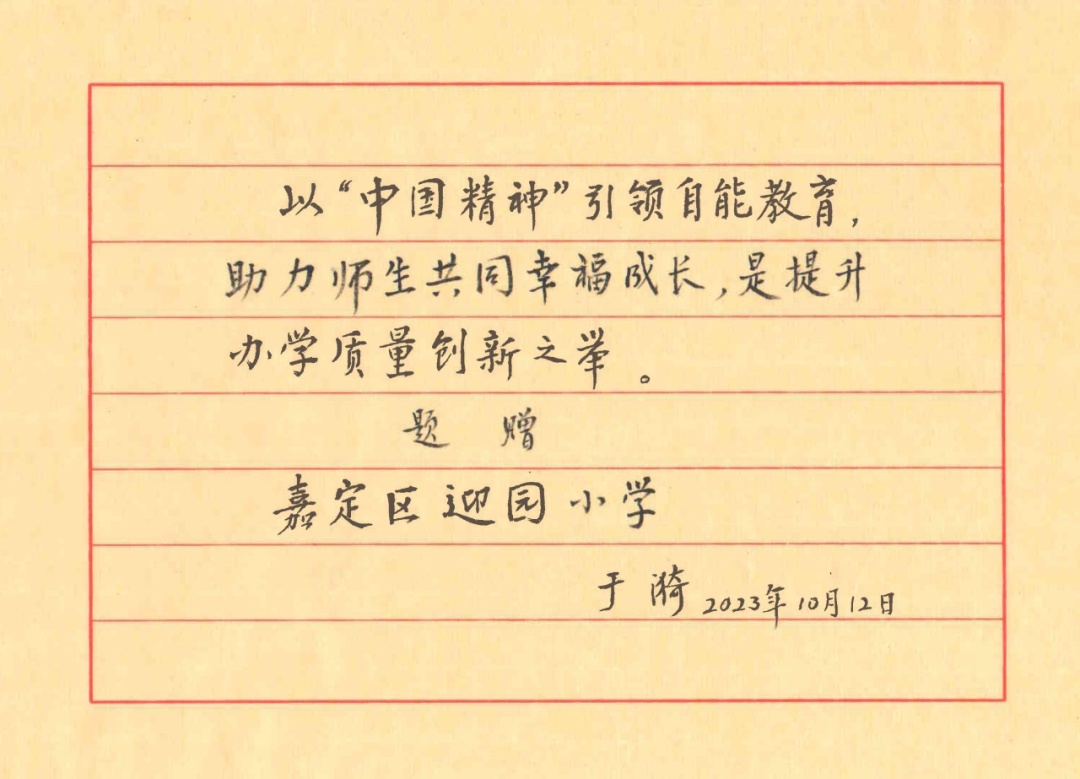 以“中国精神”引领自能教育，
助力师生共同幸福成长，是提升
办学质量创新之举。
题 赠
嘉定区迎园小学
于漪 2023年10月12日